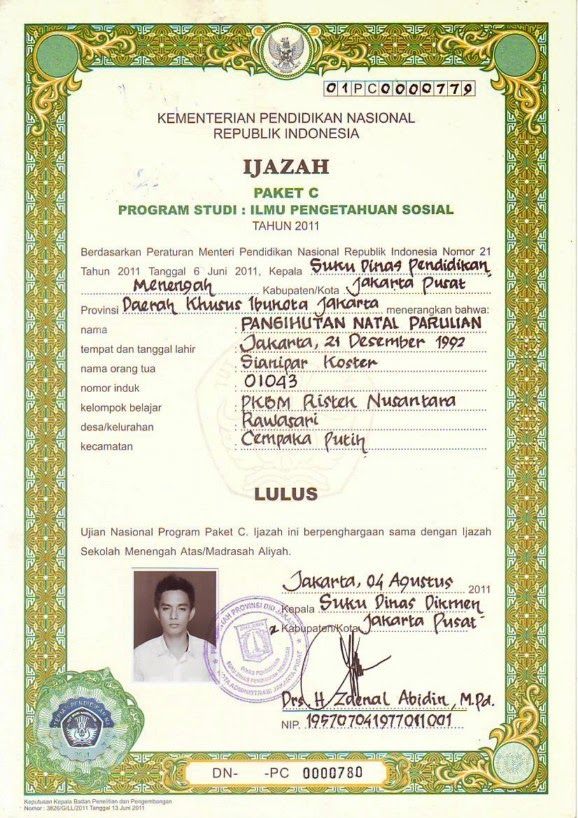 01PC0000779
KEMENTERIAN PENDIDIKAN NASIONAL
REPUBLIK INDONESIA
IJAZAH
PAKET C
PROGRAM STUDI : ILMU PENGETAHUAN SOSIAL
TAHUN 2011
Berdasarkan Peraturan Menteri Pendidikan Nasional Republik Indonesia Nomor 21
Tahun 2011 Tanggal 6 Juni 2011, Kepala Suku Dinas Pendidikan
Menengah Kabupaten/Kota Jakarta Pusat
Provinsi Daerah Khusus Ibukota Jakarta menerangkan bahwa:
nama : PANGIHUTAN NATAL PARULIAN
tempat dan tanggal lahir : Jakarta, 21 Desember 1992
nama orang tua : Sianipar Koster
nomor induk : 01043
kelompok belajar : PKBM Ristek Nusantara
desa/kelurahan : Rawasari
kecamatan : Cempaka Putih
LULUS
Ujian Nasional Program Paket C. Ijazah ini berpenghargaan sama dengan Ijazah
Sekolah Menengah Atas/Madrasah Aliyah.
Jakarta, 04 Agustus 2011
Kepala Suku Dinas Dikmen
Kabupaten/Kota Jakarta Pusat
Drs. H. Zaenal Abidin, M.Pd.
NIP. 195707041977011001
DN- -PC 0000780
Keputusan Kepala Badan Penelitian dan Pengembangan
Nomor : 3626/G/LL/2011 Tanggal 13 Juni 2011